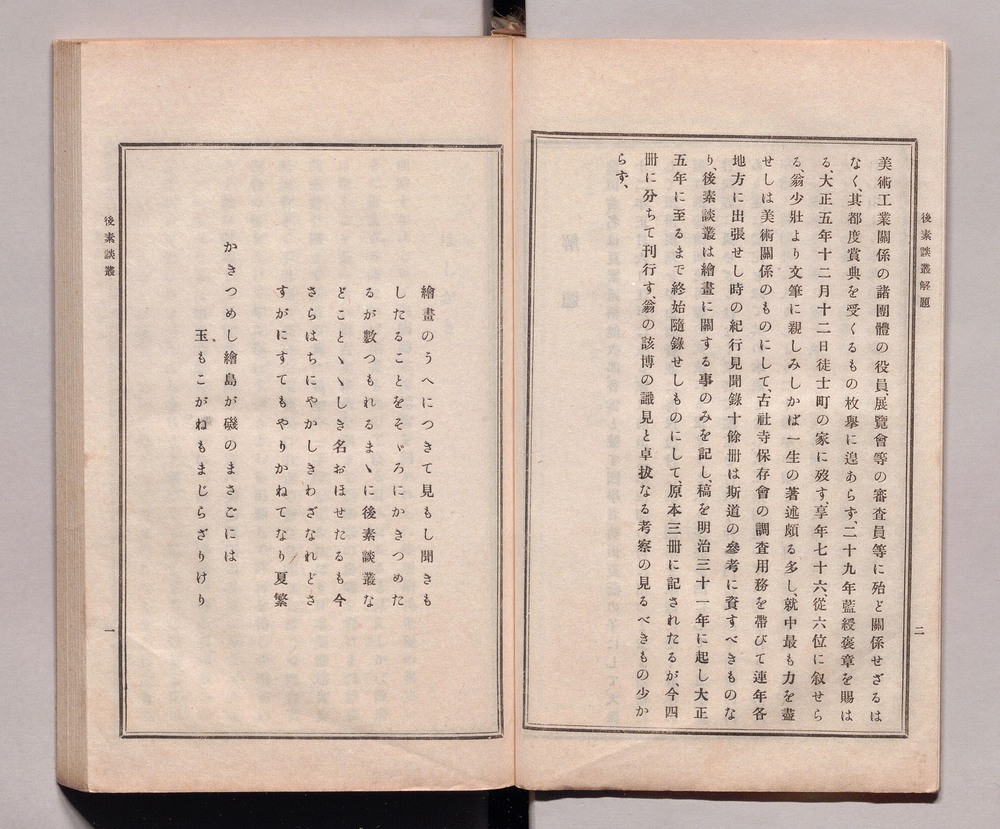 後素談叢解題
二
美術工業關係の諸團體の役員、展覽會等の審査員等に殆と關係せざるは
なく、其都度賞典を受くるもの枚擧に遑あらず、二十九年藍綬褒章を賜は
る、大正五年十二月十二日徒士町の家に歿す、享年七十六、從六位に叙せら
る、翁少壯より文筆に親しみしかば一生の著述頗る多し、就中最も力を盡
せしは美術關係のものにして、古社寺保存會の調査用務を帶びて連年各
地方に出張せし時の紀行見聞錄十餘册は斯道の參考に資すべきものな
り、後素談叢は繪畫に關する事のみを記し、稿を明治三十一年に起し大正
五年に至るまで終始隨錄せしものにして、原本三册に記されたるが、今四
册に分ちて刊行す、翁の該博の識見と卓拔なる考察の見るべきもの少か
らず、
繪畫のうへにつきて見もし聞きも
したることをそゞろにかきつめた
るが數つもれるまゝに後素談叢な
どことゝゝしき名おほせたるも今
さらはちにやかしきわざなれどさ
すがにすてもやりかねてなり夏繁
かきつめし繪島が磯のまさごには
玉もこがねもまじらざりけり
後素談叢
一